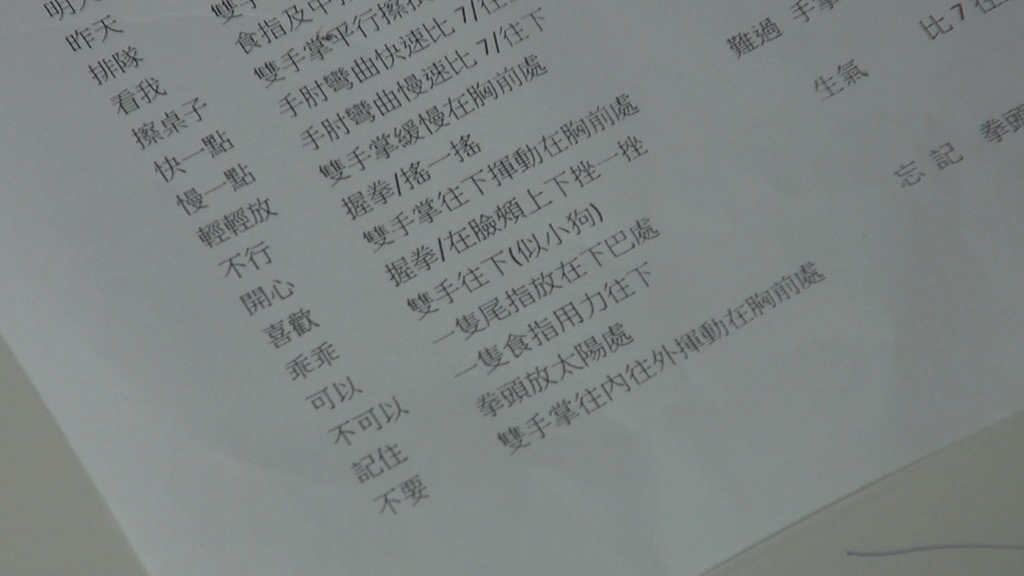 明天
昨天
排隊 雙手
看我 食指及中指
擦桌子 雙手掌平行擦
快一點 手肘彎曲快速比 7/往
慢一點 手肘彎曲慢速比 7/往下
輕輕放 雙手掌緩慢在胸前處
不行 握拳/搖一搖
開心 雙手掌往下揮動在胸前處
喜歡 握拳/在臉頰上下挫一挫
乖乖 雙手往下(似小狗)
可以 一隻尾指放在下巴處
不可以 一隻食指用力往下
記住 拳頭放太陽處
不要 雙手掌往內往外揮動在胸前處
難過 手掌
生氣 比 7 往
忘記 拳頭